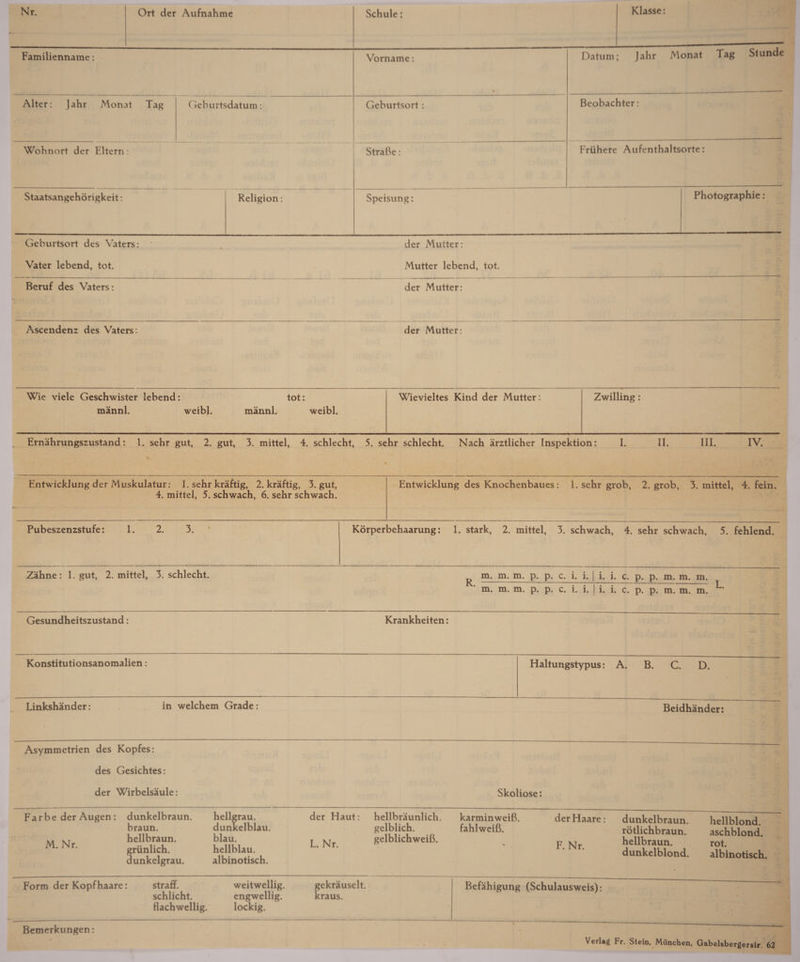 Nr. Ort der Aufnahme Schule: Klasse:
Familienname: Vorname: Datum; Jahr Monat Tag Stunde
Alter: Jahr Monat Tag Geburtsdatum: Geburtsort: Beobachter:
Wohnort der Eltern: Straße: Frühere Aufenthaltsorte:
Staatsangehörigkeit: Religion: Speisung: Photographie:
Geburtsort des Vaters: der Mutter:
Vater lebend, tot. Mutter lebend, tot.
Beruf des Vaters: der Mutter:
Ascendenz des Vaters: der Mutter:
Wie viele Geschwister lebend: tot: Wievieltes Kind der Mutter: Zwilling:
männl. weibl. männl. weibl.
Ernährungszustand: 1. sehr gut, 2. gut, 3. mittel, 4. schlecht, 5. sehr schlecht. Nach ärztlicher Inspektion: I. II. III. IV.
Entwicklung der Muskulatur: 1. sehr kräftig, 2. kräftig, 3. gut, Entwicklung des Knochenbaues: 1. sehr grob, 2. grob, 3. mittel, 4. fein.
4. mittel, 5. schwach, 6. sehr schwach.
Pubeszenzstufe: 1. 2. 3. Körperbehaarung: 1. stark, 2. mittel, 3. schwach, 4. sehr schwach, 5. fehlend.
Zähne: 1. gut, 2. mittel, 3. schlecht. m. m. m. p. p. c. i. i. | i. i. c. p. p. m. m. m.
R. L.
m. m. m. p. p. c. i. i. | i. i. c. p. p. m. m. m.
Gesundheitszustand: Krankheiten:
Konstitutionsanomalien: Haltungstypus: A. B. C. D.
Linkshänder: in welchem Grade: Beidhänder:
Asymmetrien des Kopfes:
des Gesichtes:
der Wirbelsäule: Skoliose:
Farbe der Augen: dunkelbraun. hellgrau. der Haut: hellbräunlich. karminweiß. der Haare: dunkelbraun. hellblond.
braun. dunkelblau. gelblich. fahlweiß. rötlichbraun. aschblond.
M. Nr. hellbraun. blau. L. Nr. gelblichweiß. F. Nr. hellbraun. rot.
grünlich. hellblau. dunkelblond. albinotisch.
dunkelgrau. albinotisch.
Form der Kopfhaare: straff. weitwellig. gekräuselt. Befähigung (Schulausweis):
schlicht. engwellig. kraus.
flachwellig. lockig.
Bemerkungen:
Verlag Fr. Stein, München, Gabelsbergerstr. 62